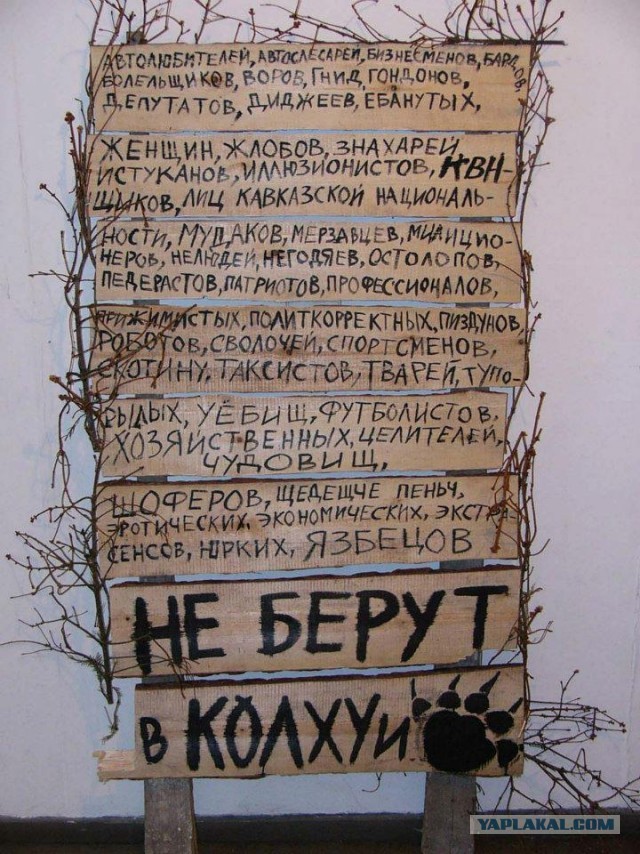 АВТОЛЮБИТЕЛЕЙ, АВТОСЛЕСАРЕЙ, БИЗНЕСМЕНОВ, БАРДОВ,
БОЛЕЛЬЩИКОВ, ВОРОВ, ГНИД, ГОНДОНОВ,
ДЕПУТАТОВ, ДИДЖЕЕВ, ЕБАНУТЫХ,
ЖЕНЩИН, ЖЛОБОВ, ЗНАХАРЕЙ,
ИСТУКАНОВ, ИЛЛЮЗИОНИСТОВ, КВН-
ЩИКОВ, ЛИЦ КАВКАЗСКОЙ НАЦИОНАЛЬ-
НОСТИ, МУДАКОВ, МЕРЗАВЦЕВ, МИЛИЦИО-
НЕРОВ, НЕЛЮДЕЙ, НЕГОДЯЕВ, ОСТОЛОПОВ,
ПЕДЕРАСТОВ, ПАТРИОТОВ, ПРОФЕССИОНАЛОВ,
ПРИЖИМИСТЫХ, ПОЛИТКОРРЕКТНЫХ, ПИЗДУНОВ,
РОБОТОВ, СВОЛОЧЕЙ, СПОРТСМЕНОВ,
СКОТИНУ, ТАКСИСТОВ, ТВАРЕЙ, ТУПО-
РЫЛЫХ, УЁБИЩ, ФУТБОЛИСТОВ,
ХОЗЯЙСТВЕННЫХ, ЦЕЛИТЕЛЕЙ,
ЧУДОВИЩ,
ШОФЕРОВ, ЩЕДЕЩЧЕ ПЕНЬЧ,
ЭРОТИЧЕСКИХ, ЭКОНОМИЧЕСКИХ, ЭКСТРА-
СЕНСОВ, ЮРКИХ, ЯЗБЕЦОВ
НЕ БЕРУТ
В КОЛХУИ
YAPLAKAL.COM